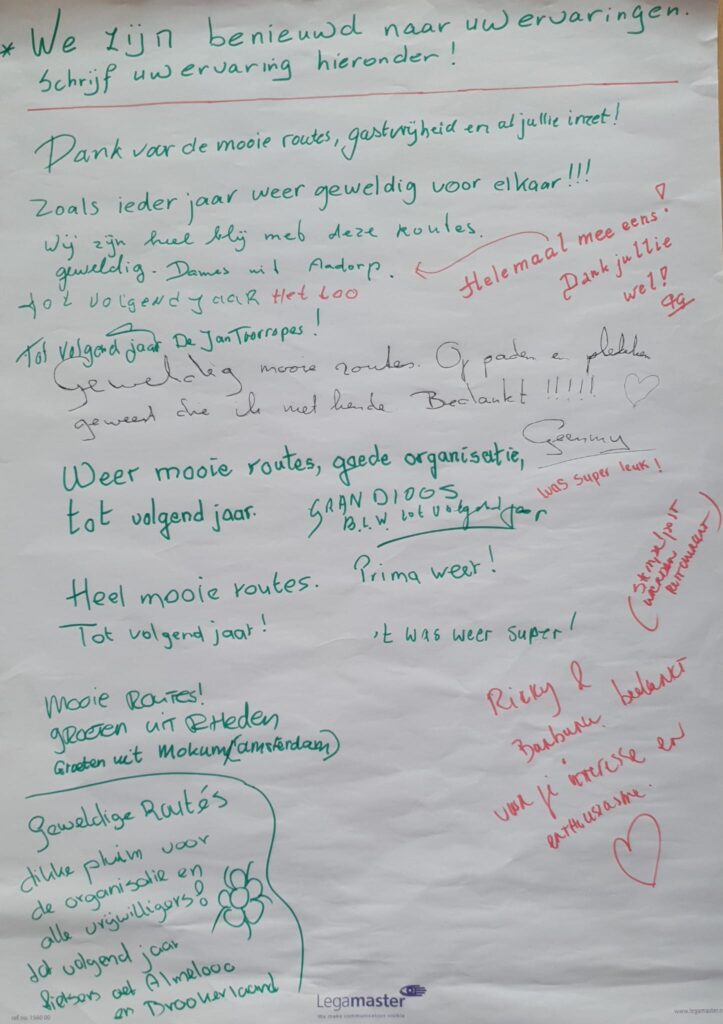 * We zijn benieuwd naar uw ervaringen.
Schrijf uw ervaring hieronder!
Dank voor de mooie routes, gastvrijheid en al jullie inzet!
Zoals ieder jaar weer geweldig voor elkaar!!!
Wij zijn heel blij met deze routes.
geweldig. Dames uit Aadorp.
Helemaal mee eens!
Dank jullie
wel!
tot volgend jaar Het Loo
Tot volgend jaar De Jan Toorropes!
Geweldig mooie routes. Op paden en plekken
geweest die ik niet kende. Bedankt !!!!!
Geenmy
Weer mooie routes, goede organisatie,
tot volgend jaar.
was super leuk!
GRANDIOOS
B.L.W. tot volgend jaar
Heel mooie routes. Prima weer!
Tot volgend jaar!
't was weer super!
(Stempelpost
Mooie Routes!
groeten uit Rheden
Groeten uit Mokum (amsterdam)
Ricky &
Barbara bedankt
voor je interesse en
enthusiasme.
Geweldige Routés
dikke pluim voor
de organisatie en
alle vrijwilligers!
tot volgend jaar
fietsers uit Almelooo
en Brookerlaand
Legamaster
We make communication visible
ref.no. 1560 00
www.legamaster.